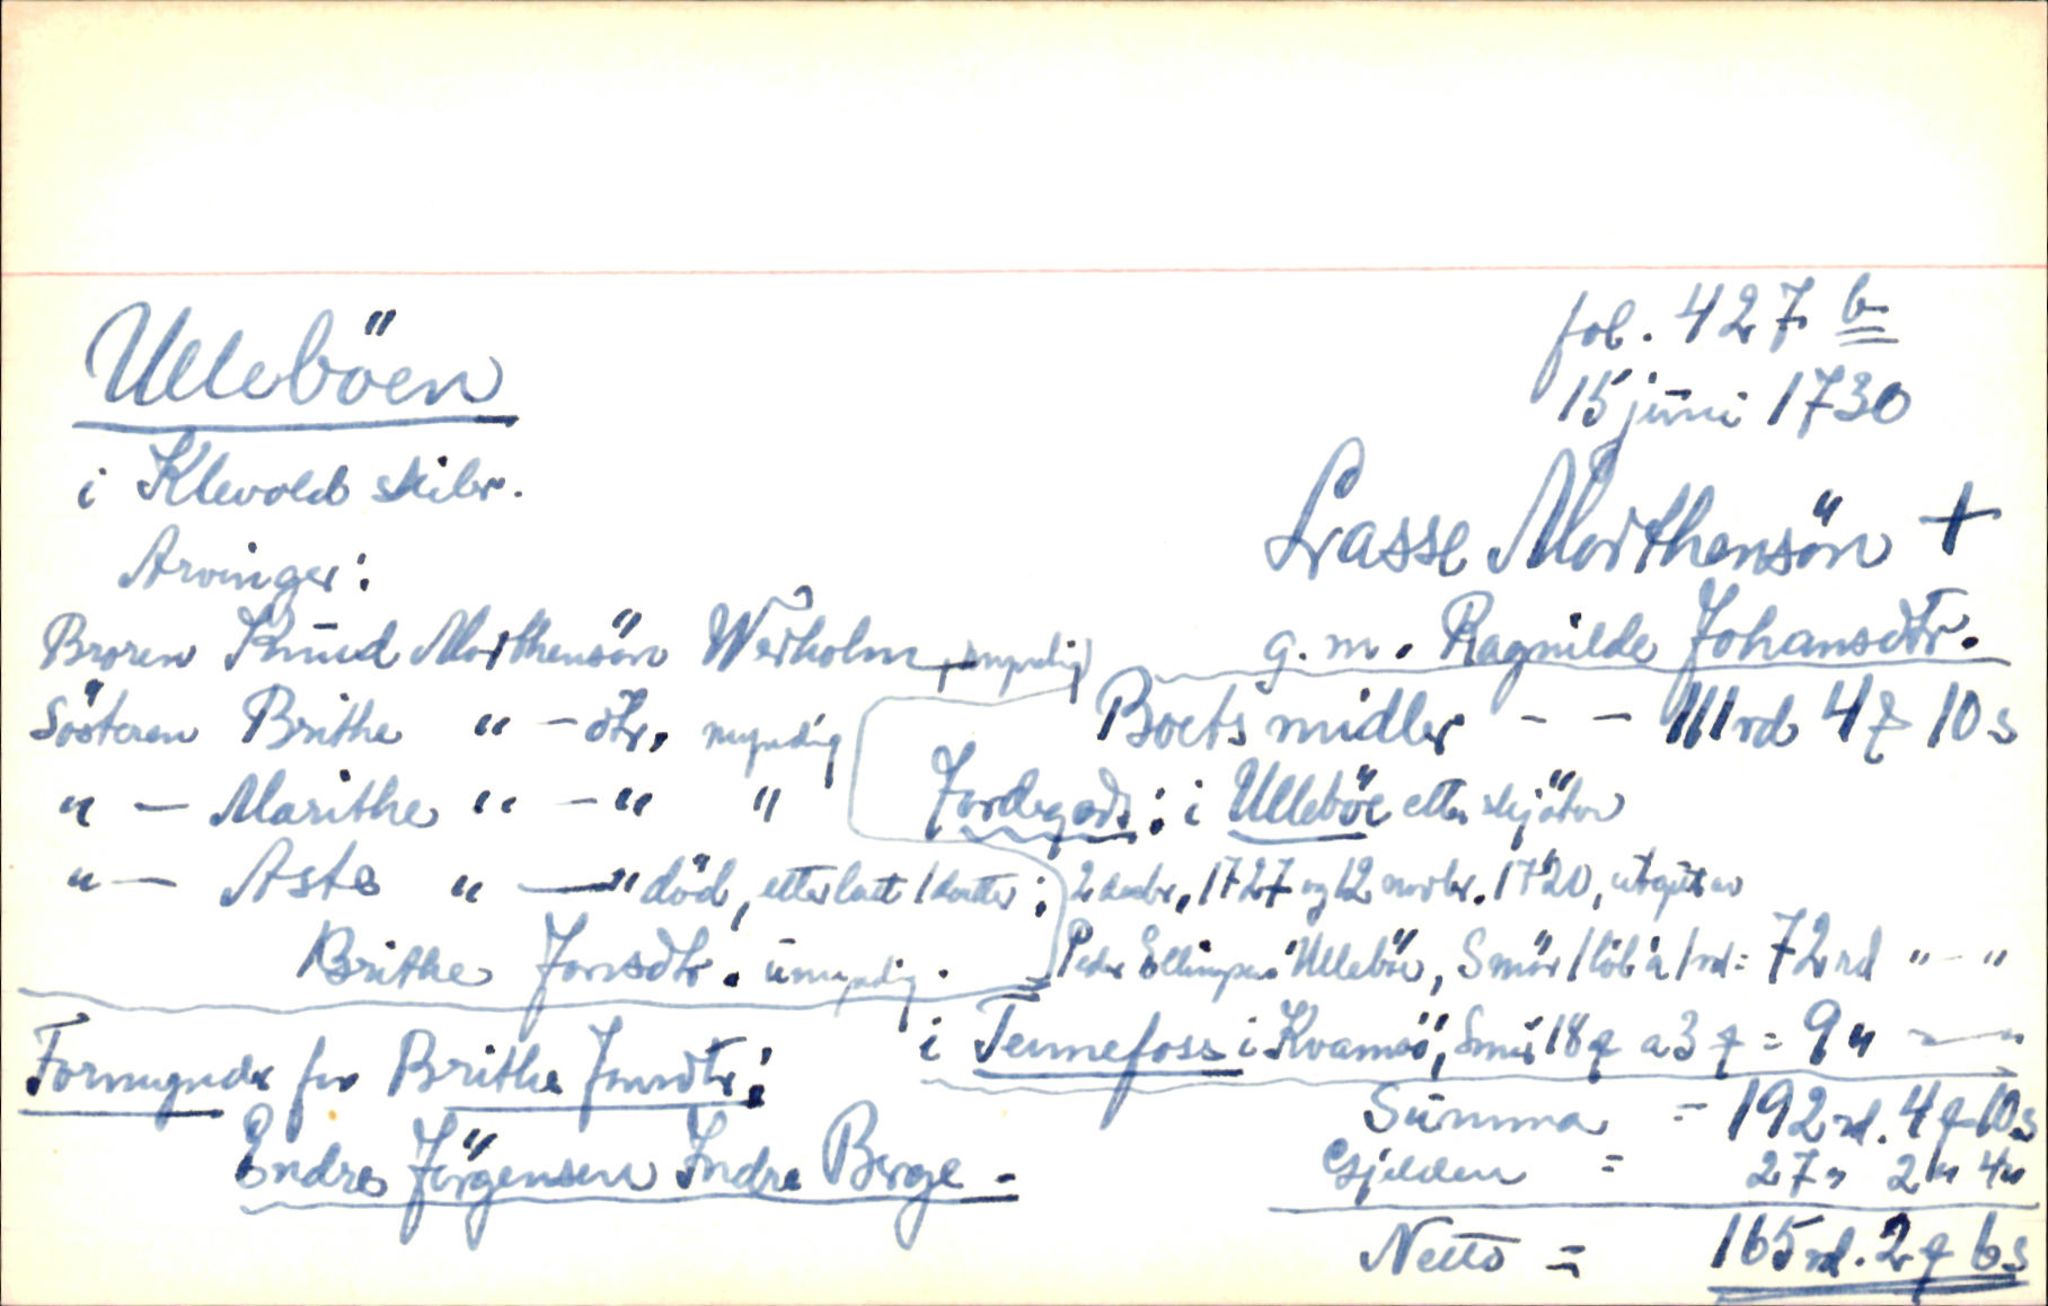 fol. 427 b
15 juni 1730
Ulleböen
i Klevold skibr.
Lasse Morthensön +
g. m. Ragnilde Johansdtr.
Arvinger:
Broren Knud Morthensön Werholm, myndig
Sösteren Brithe " - dtr, myndig
" - Marithe " - " "
" - Aste " - " död, etterlatt 1 datter:
Brithe Jonsdtr. umyndig.
Formynder for Brithe Jonsdtr:
Endre Jörgensen Indre Berge -
Boets midler - - 111 rd 4 ƶ 10 s
Jordegods: i Ulleböe etter skjöter
2 decbr. 1727 og 12 novbr. 1720, utgitt av
Peder Ellingsen Ulleböe, Smör 1 löb a 1 rd = 72 rd " - "
i Tennefoss i Kvamsö, Smör 18 ƶ a 3 ƶ = 9 " " - "
Summa = 192 rd. 4 ƶ 10 s
Gjelden = 27 " 2 " 4 "
Netto = 165 rd. 2 ƶ 6 s